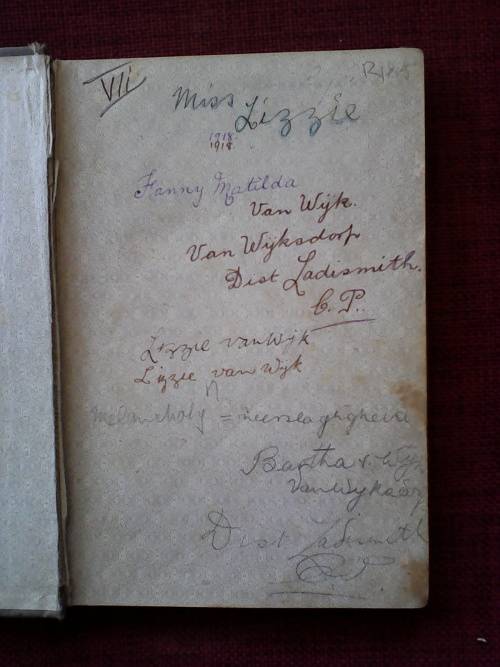 VII
Miss Lizzie
1918
1918
Fanny Matilda
Van Wijk.
Van Wijksdorp
Dist Ladismith.
C.P.
Lizzie van Wijk
Lizzie van Wijk
Melancholy = neerslagtigheid
Bartha v. Wyk
Dist Ladismith